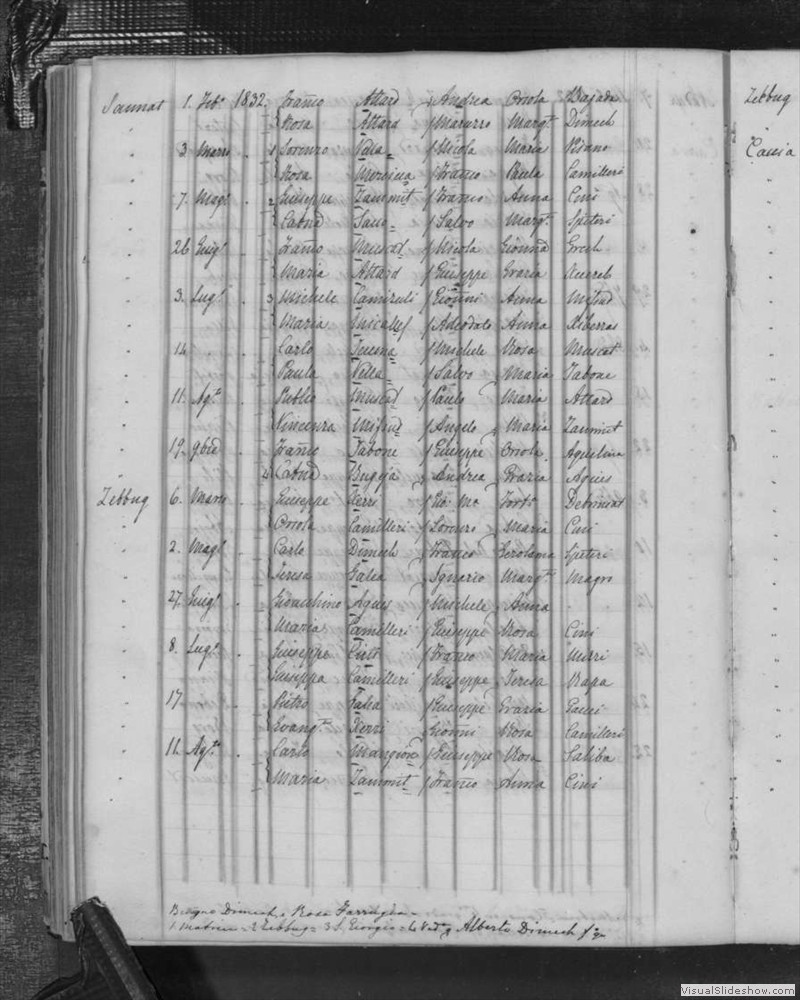 Sannat 1. Feb.o 1832. Franco Attard f Andrea Orsola Bajada
Rosa Attard f Maruzzo Marg.ta Dimech
3 Marzo 1 Lorenzo Vella f Nicola Maria Pisano
Rosa Mercieca f Franco Paula Camilleri
7. Magg.o 2 Giuseppe Zammit f Franco Anna Cini
Catna f Salvo Marg.ta Spiteri
26 Giug.o Franco Muscat f Nicola Gionna Grech
Maria Attard f Giuseppe Grazia
3. Lug.o 3 Michele f Gionni Anna Mifsud
Maria Micallef f Adeodato Anna Xiberras
14 Carlo f Michele Rosa Muscat
Paula Vella f Salvo Maria Tabone
11. Ag.to Publio Muscat f Paulo Maria Attard
Vincenza Mifsud f Angelo Maria Zammit
19. 9bre Franco Tabone f Giuseppe Orsola Aquilina
4 Catna Bugeja f Andrea Grazia Agius
Zebbug 6. Marzo Giuseppe Xerri f Gio Ma Fort.a Debrincat
Orsola Camilleri f Lorenzo Maria Cini
2. Magg.o Carlo Dimech f Franco Gerolama Spiteri
Teresa Galea f Ignazio Marg.ta Magro
27. Giug.o Gioacchino Agius f Michele Anna
Maria Camilleri f Giuseppe Rosa Cini
8. Lug.o Giuseppe Cini f Franco Maria
Giuseppa Camilleri f Giuseppe Teresa Rapa
17 Pietro f Giuseppe Grazia
Evang.ta Xerri Gionni Rosa Camilleri
11. Ag.to Carlo Mangion f Giuseppe Rosa Saliba
Maria Zammit f Franco Anna Cini
Dimech, Rosa Farrugia
1. Matrice 2 Zebbug 3 S. Giorgio 4 Alberto Dimech
Zebbug
VisualSlideshow.com